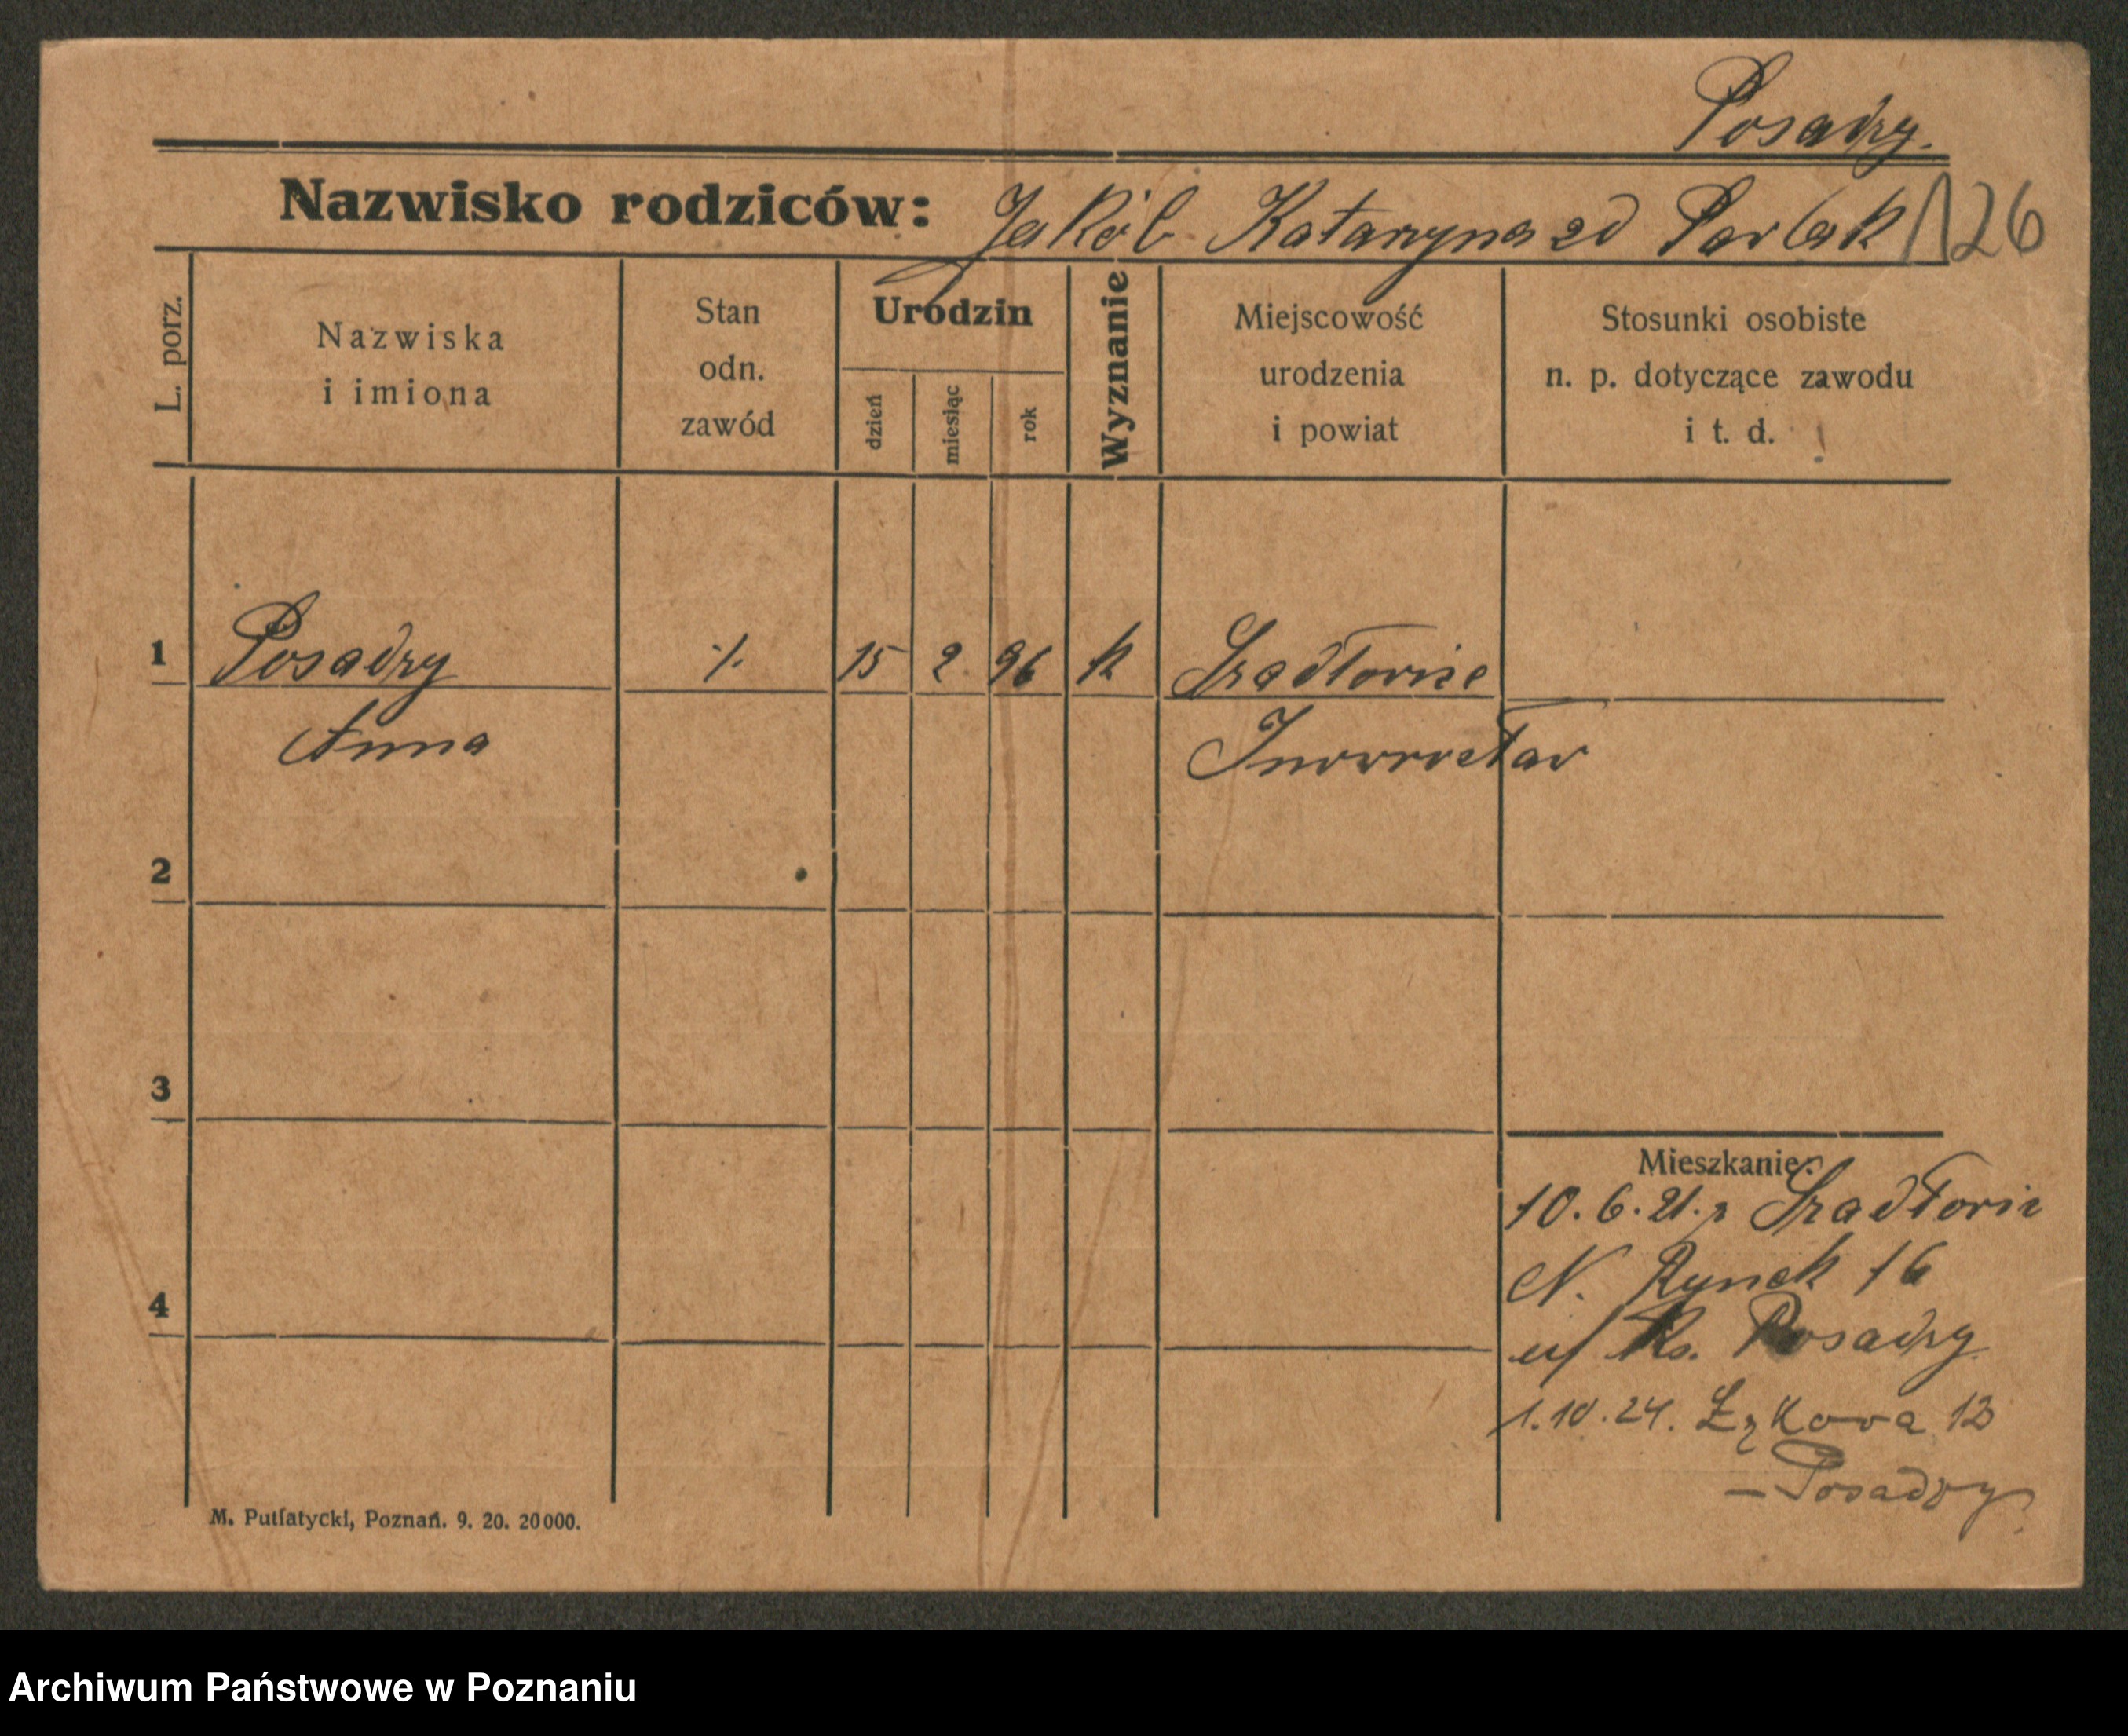 Posadzy.
Nazwisko rodziców: Jakób Katarzyna zd Pawlak 126
L. porz.
Nazwiska
i imiona
Stan
odn.
zawód
Urodzin
dzień
miesiąc
rok
Wyznanie
Miejscowość
urodzenia
i powiat
Stosunki osobiste
n. p. dotyczące zawodu
i t. d.
1 Posadzy ·/. 15 2 96 k Szadłowice
Anna Inowrocław
2
3
4
Mieszkanie:
10. 6. 21. z Szadłowic
N. Rynek 16
u/ Ks. Posadzy
1. 10. 24. Łąkowa 13
– Posadzy
M. Putiatycki, Poznań. 9. 20. 20000.
Archiwum Państwowe w Poznaniu